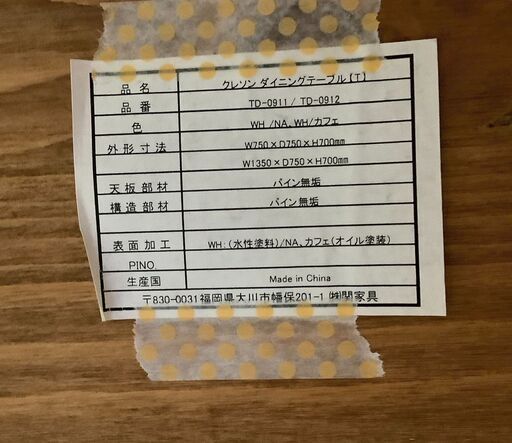 品名 クレソン ダイニングテーブル【T】
品番 TD-0911 / TD-0912
色 WH /NA、WH/カフェ
外形寸法 W750×D750×H700mm
W1350×D750×H700mm
天板部材 パイン無垢
構造部材 パイン無垢
表面加工 WH:(水性塗料)/NA、カフェ(オイル塗装)
PINO.
生産国 Made in China
〒830-0031福岡県大川市幡保201-1 ㈱関家具